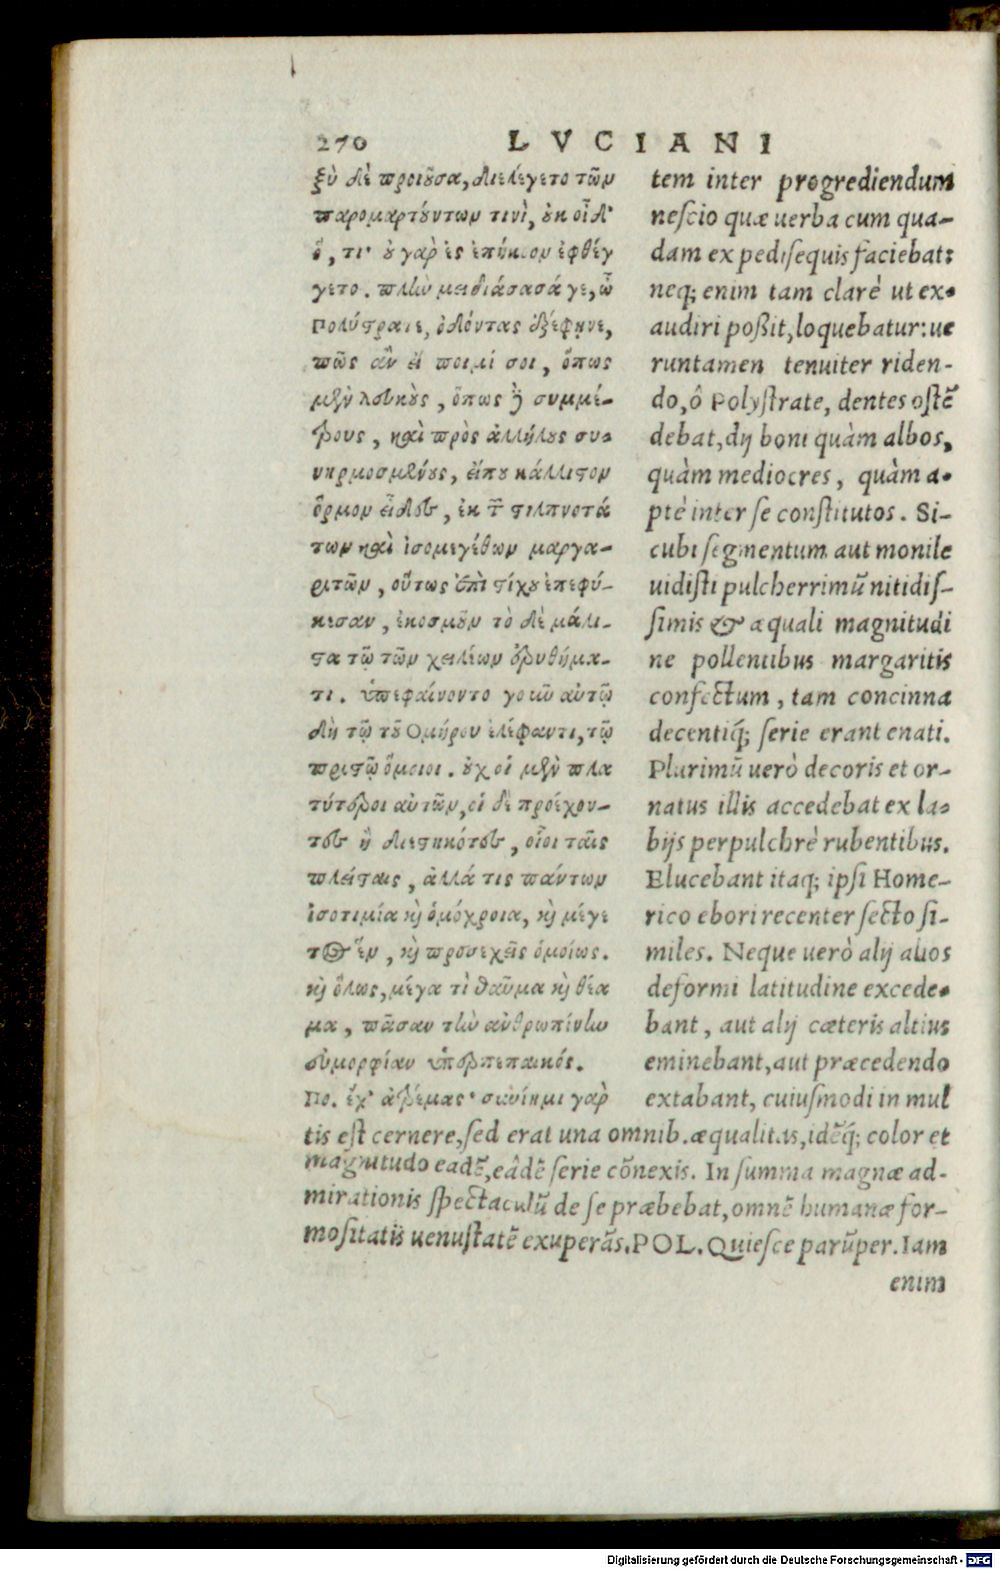 270 LVCIANI
ξὺ δὲ προιοῦσα, διελέγετο τῶν
παρομαρτούντων τινὶ, οὐκ οἶδ'
ὅ, τι· οὐ γὰρ ἐς ἐπήκοον ἐφθέγ
γετο. πλὴν μειδιάσασά γε, ὦ
Πολύστρατε, ὀδόντας ἐξέφηνε,
πῶς ἂν εἴποιμί σοι, ὅπως
μὲν λευκοὺς, ὅπως δὲ συμμέ-
τρους, καὶ πρὸς ἀλλήλους συν
ηρμοσμένους, εἴπου κάλλιστον
ὅρμον εἶδες, ἐκ τῶν στιλπνοτά
των καὶ ἰσομεγέθων μαργα-
ριτῶν, οὕτως ἐπὶ στίχου ἐπεφύ-
κεσαν, ἐκοσμοῦν τὸ δὲ μάλι-
στα τῷ τῶν χειλέων ἐρυθήμα-
τι. ὑπεφαίνοντο γοῦν αὐτῷ
δὴ τῷ τοῦ Ομήρου ἐλέφαντι, τῷ
πριστῷ ὅμοιοι. οὐχ οἱ μὲν πλα
τύτεροι αὐτῶν, οἱ δὲ προέχον-
τες ἢ διεστηκότες, οἷοι ταῖς
πλείσταις, ἀλλά τις πάντων
ἰσοτιμία καὶ ὁμόχροια, καὶ μέγε
τος ἓν, καὶ προσεχεῖς ὁμοίως.
καὶ ὅλως, μέγα τὶ θαῦμα καὶ θέα
μα, πᾶσαν τὴν ἀνθρωπίνην
εὐμορφίαν ὑπερπεπαικός.
Πο. ἔχ' ἀτρέμας· συνίημι γὰρ
tem inter progrediendum
nescio quæ uerba cum qua-
dam ex pedisequis faciebat:
neq; enim tam clarè ut ex-
audiri poßit, loquebatur: ue
runtamen tenuiter riden-
do, ô Polystrate, dentes ostẽ
debat, dij boni quàm albos,
quàm mediocres, quàm a-
ptè inter se constitutos. Si-
cubi segmentum aut monile
uidisti pulcherrimũ nitidis-
simis & æquali magnitudi
ne pollentibus margaritis
confectum, tam concinna
decentiq́; serie erant enati.
Plurimũ uerò decoris et or-
natus illis accedebat ex la-
bijs perpulchrè rubentibus.
Elucebant itaq; ipsi Home-
rico ebori recenter secto si-
miles. Neque uerò alij alios
deformi latitudine excede-
bant, aut alij cæteris altius
eminebant, aut præcedendo
extabant, cuiusmodi in mul
tis est cernere, sed erat una omnib. æqualitas, idẽq́; color et
magnitudo eadẽ, eâdẽ serie cõnexis. In summa magnæ ad-
mirationis spectaculũ de se præbebat, omnẽ humanæ for-
mositatis uenustatẽ exuperãs. POL. Quiesce parũper. Iam
enim
Digitalisierung gefördert durch die Deutsche Forschungsgemeinschaft - DFG